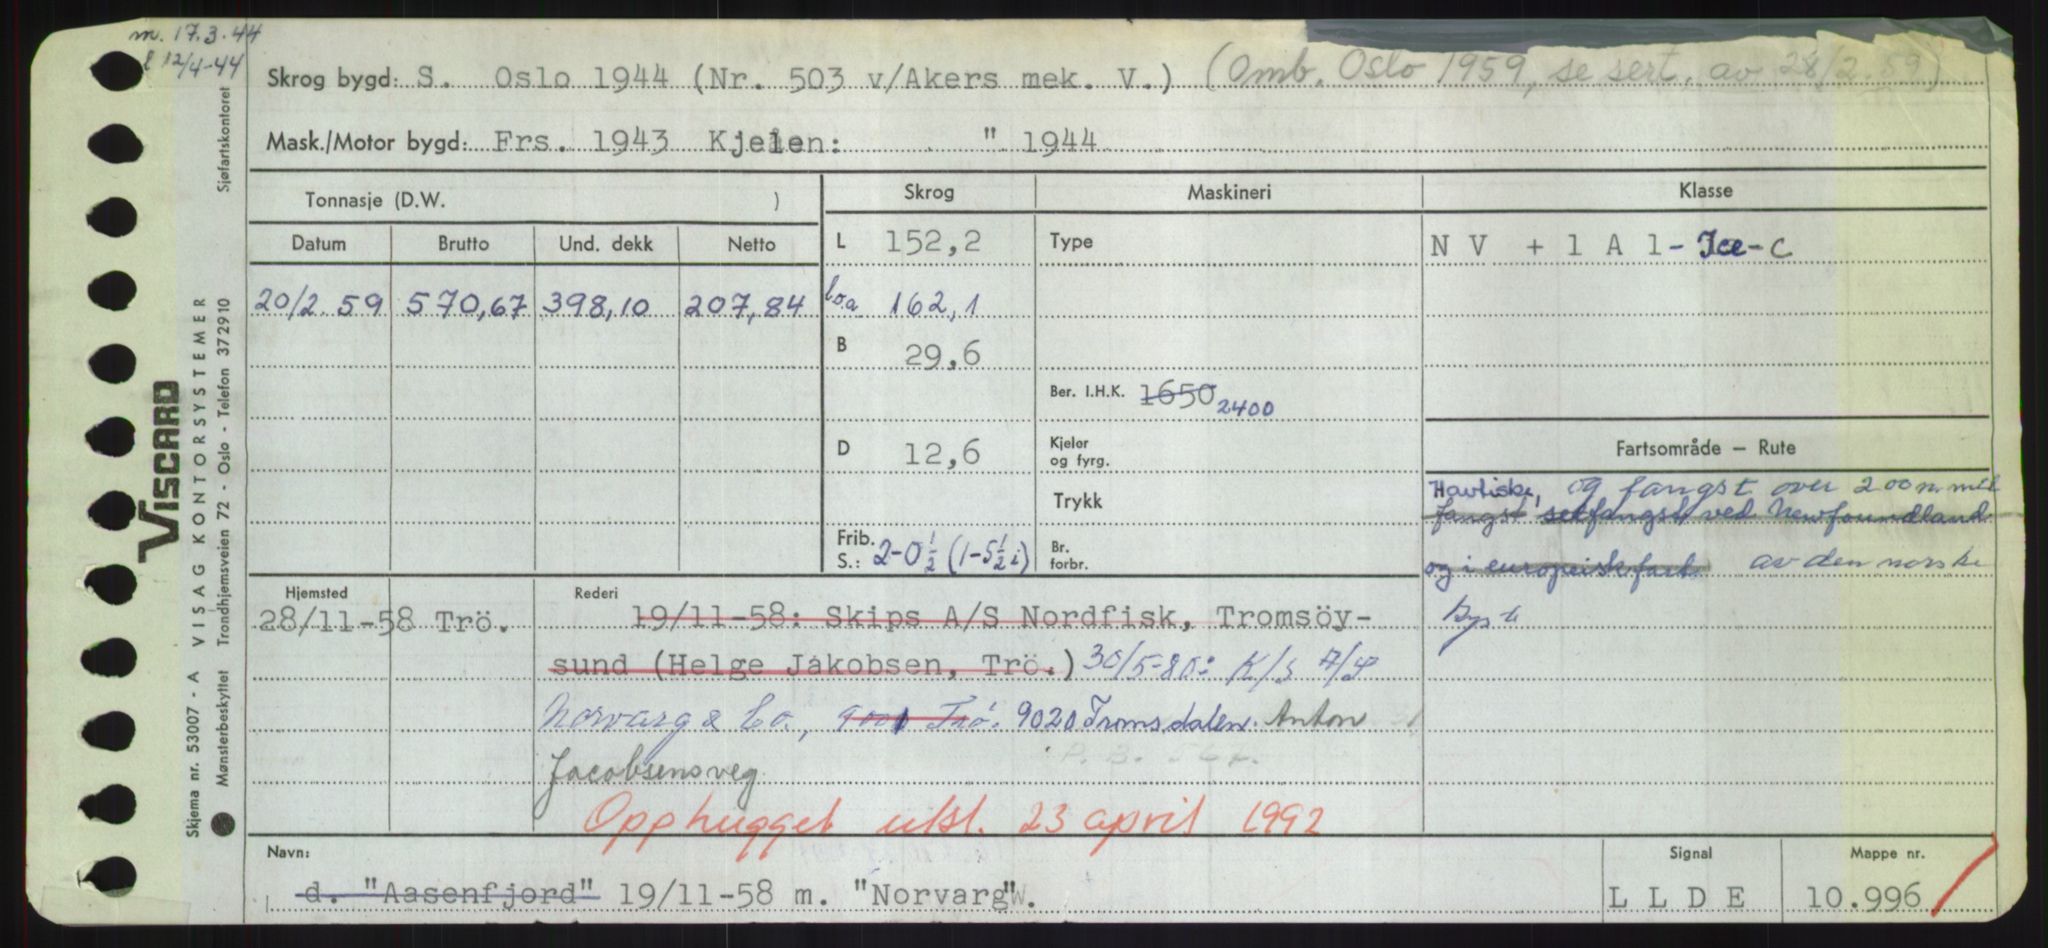 m. 17.3.44
12/4-44
Skrog bygd: S. Oslo 1944 (Nr. 503 v/Akers mek. V.) (Omb. Oslo 1959, se sert. av 28/2.59)
Mask./Motor bygd: Frs. 1943 Kjelen: " 1944
Tonnasje (D.W. )
Datum Brutto Und. dekk Netto
20/2.59 570,67 398,10 207,84
Skrog
L 152,2
l.o.a 162,1
B 29,6
D 12,6
Frib.
S.: 2-0½ (1-5½ i)
Maskineri
Type
Ber. I.H.K. 1650 2400
Kjeler
og fyrg.
Trykk
Br.
forbr.
Klasse
N V + 1 A 1 - Ice - C
Fartsområde — Rute
Havfiske, og fangst over 200 n. mil
fangst selfangst ved Newfoundland
og i europeisk fart. av den norske
kyst
Hjemsted
28/11-58 Trö.
Rederi
19/11-58: Skips A/S Nordfisk, Tromsöy-
sund (Helge Jakobsen, Trö.) 30/5-80: K/S A/S
Norvarg & Co., 9001 Trö. 9020 Tromsdalen. Anton
Jacobsensveg
Opphugget utsl. 23 april 1992
Navn:
d. "Aasenfjord" 19/11-58 m. "Norvarg".
Signal
L L D E
Mappe nr.
10.996
Sjøfartskontoret
VISCARD
VISAG KONTORSYSTEMER
Trondhjemsveien 72 - Oslo - Telefon 372910
Skjema nr. 53007 - A
Mønsterbeskyttet